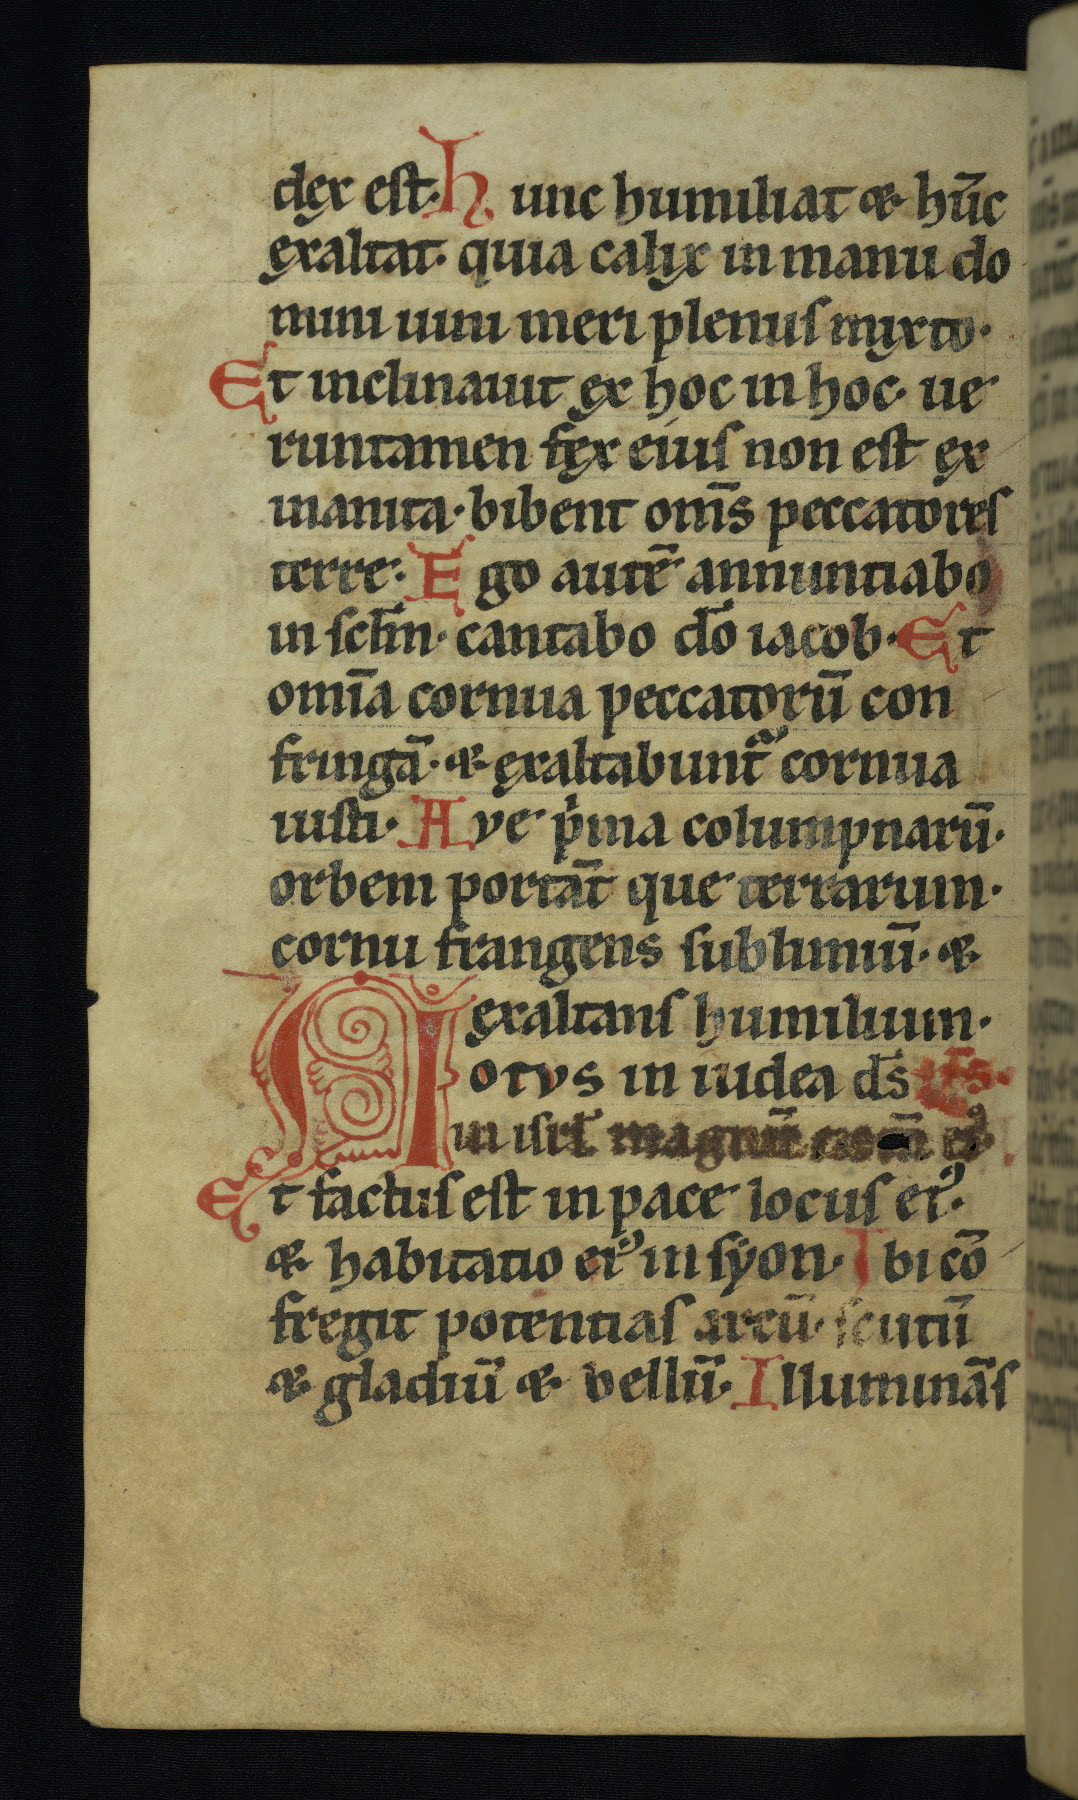 dex est· Hunc humiliat & hūc
exaltat· quia calix in manu do
mini uini meri plenus myxto·
Et inclinauit ex hoc in hoc· ue
runtamen fex eius non est ex
inanita· bibent om̄s peccatores
terre· Ego autē annuntiabo
in sclm̄· cantabo dō iacob· Et
omīa cornua peccatorū con
fringā· & exaltabunt᷑ cornua
iusti· Aye pͥma columpnarū·
orbem portāt que terrarum·
cornu frangens sublimiū· &
exaltans humilium·
Notvs in iudea ds̄
in isrł magnū nom̄ eiꝰ
Et factus est in pace locus eiꝰ·
& habitatio eiꝰ in syon· Ibi cō
fregit potentias arcū· scutū
& gladiū & bellū· Illuminās